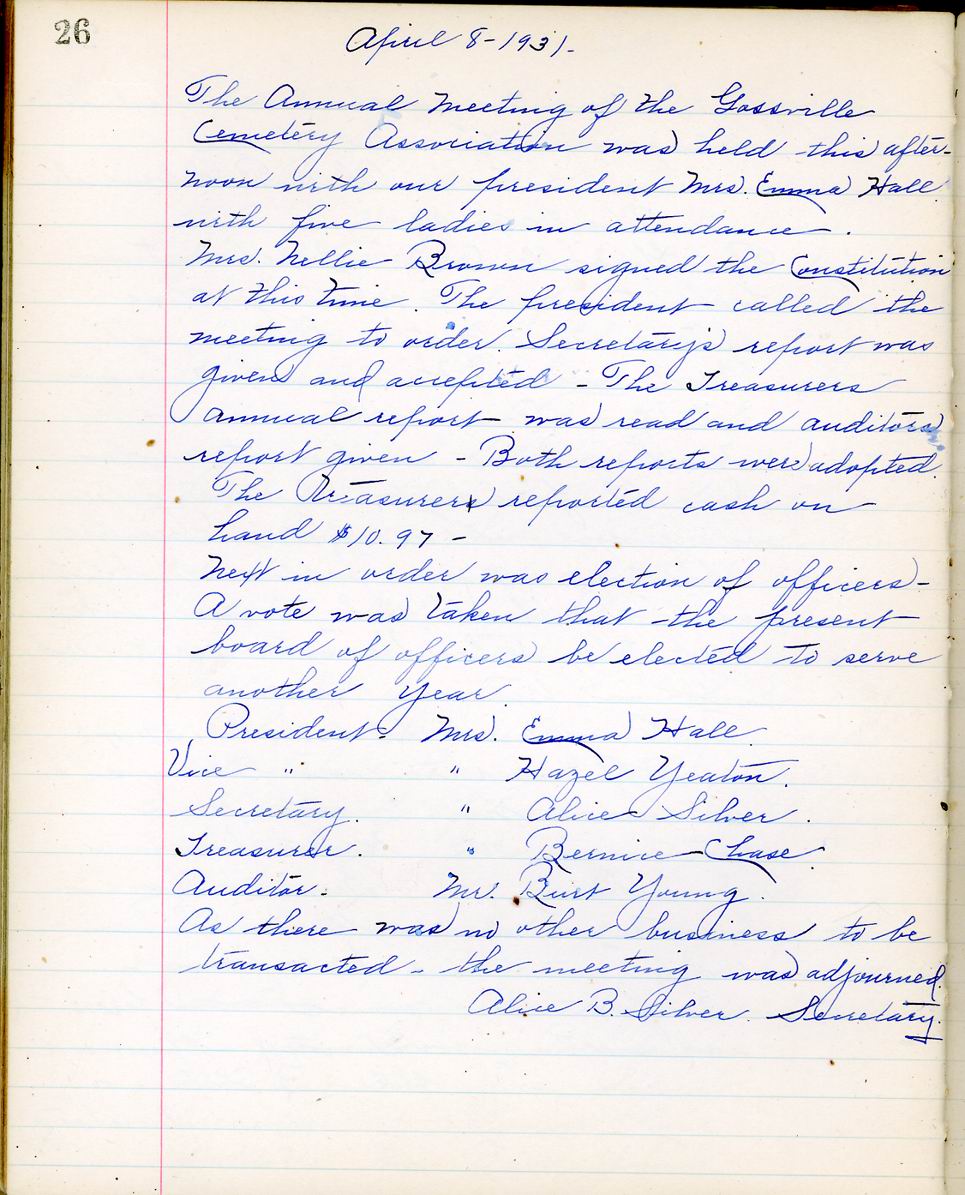 26
April 8-1931-
The Annual Meeting of the Gossville
Cemetery Association was held this after-
noon with our president Mrs. Emma Hall
with five ladies in attendance.
Mrs. Nellie Brown signed the Constitution
at this time. The president called the
meeting to order. Secretary's report was
given and accepted - The Treasurers
annual report was read and auditors
report given - Both reports were adopted.
The Treasurers reported cash on
hand $10.97 -
Next in order was election of officers -
A vote was taken that the present
board of officers be elected to serve
another year.
President. Mrs. Emma Hall.
Vice " " Hazel Yeaton.
Secretary. " Alice Silver.
Treasurer. " Bernice Chase.
Auditor. Mr. Burt Young.
As there was no other business to be
transacted - the meeting was adjourned.
Alice B. Silver. Secretary.